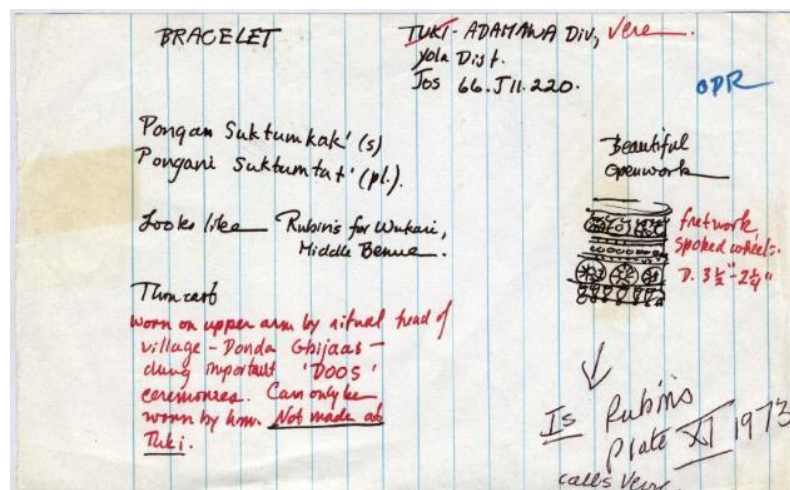 BRACELET
TUKI - ADAMAWA Div, Vere
Yola Dist.
Jos 66.J11.220.
OPR
Pongan Suktumkak' (s)
Pongani Suktumtat' (pl.).
Beautiful
openwork
Looks like Rubin's for Wukari,
Middle Benue.
fretwork,
spoked wheels.
D. 3½"-2¼"
Thin cast
worn on upper arm by ritual head of
village - Donda Gbijaas -
during important 'DOOS'
ceremonies. Can only be
worn by him. Not made at
Tuki.
Is Rubin's
Plate XI 1973
calls Vere